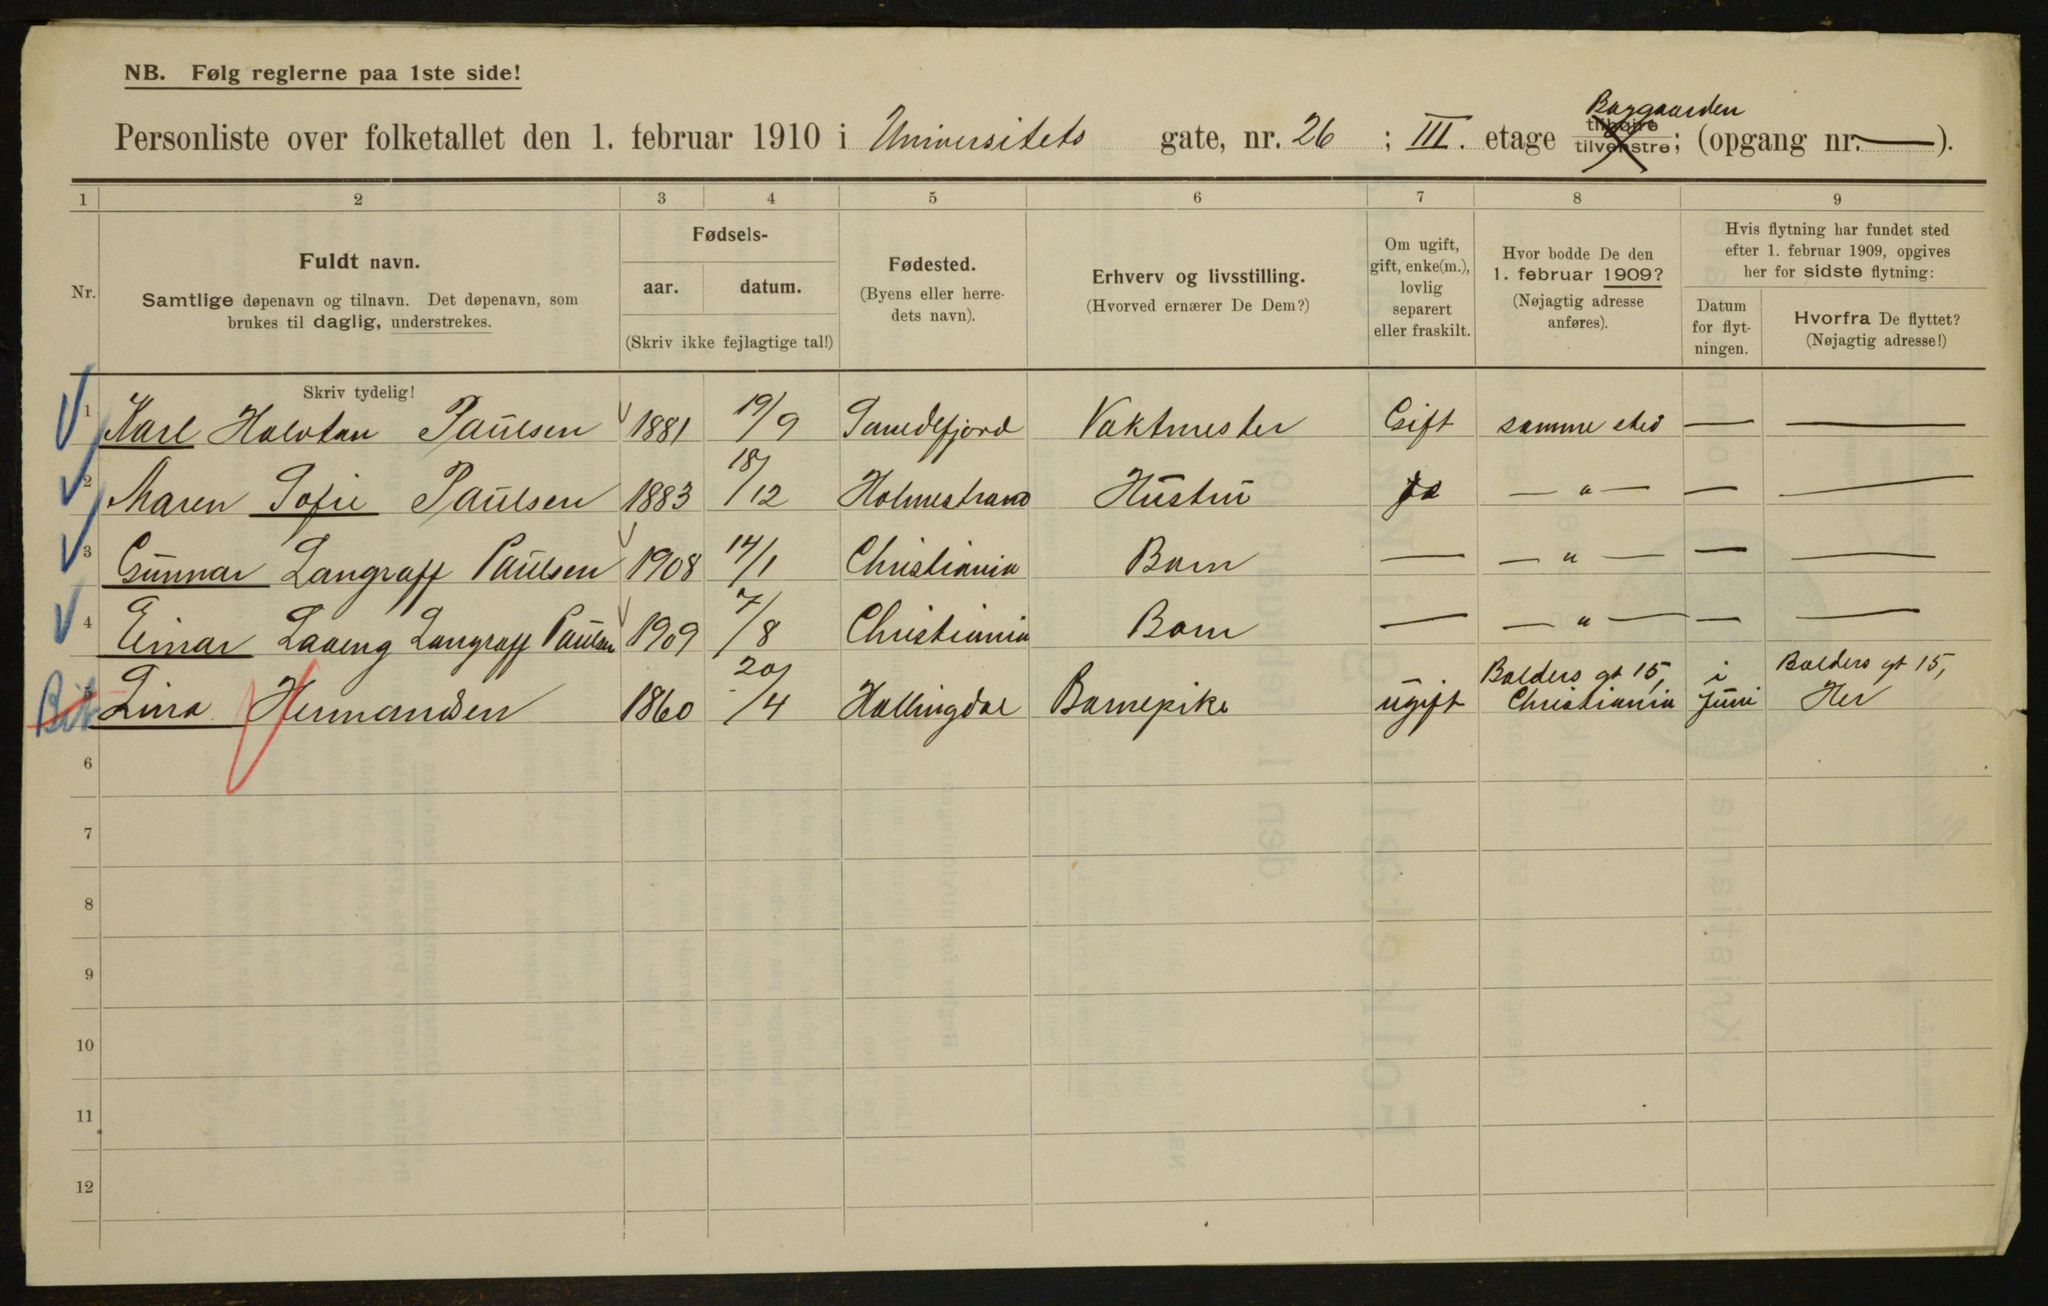 NB. Følg reglerne paa 1ste side!
Baggaarden
Personliste over folketallet den 1. februar 1910 i Universitets gate, nr. 26 ; III. etage tilhøire tilvenstre; (opgang nr. — ).
1 2 3 4 5 6 7 8 9
Nr.
Fuldt navn.
Samtlige døpenavn og tilnavn. Det døpenavn, som
brukes til daglig, understrekes.
Skriv tydelig!
Fødsels-
aar. datum.
(Skriv ikke fejlagtige tal!)
Fødested.
(Byens eller herre-
dets navn).
Erhverv og livsstilling.
(Hvorved ernærer De Dem?)
Om ugift,
gift, enke(m.),
lovlig
separert
eller fraskilt.
Hvor bodde De den
1. februar 1909?
(Nøjagtig adresse
anføres).
Hvis flytning har fundet sted
efter 1. februar 1909, opgives
her for sidste flytning:
Datum
for flyt-
ningen.
Hvorfra De flyttet?
(Nøjagtig adresse!)
1 Karl Halvdan Paulsen 1881 19/9 Sandefjord Vaktmester Gift samme sted — —
2 Maren Sofie Paulsen 1883 18/12 Holmestrand Hustru — " — — —
3 Gunnar Langraff Paulsen 1908 14/1 Christiania Barn — — " — — —
4 Einar Langraff Paulsen 1909 7/8 Christiania Barn — — " — — —
5 Lina Hermandsen 1860 20/4 Hallingdal Barnepike ugift Balders gt 15, Christiania i Juni Balders gt 15, Her
6
7
8
9
10
11
12